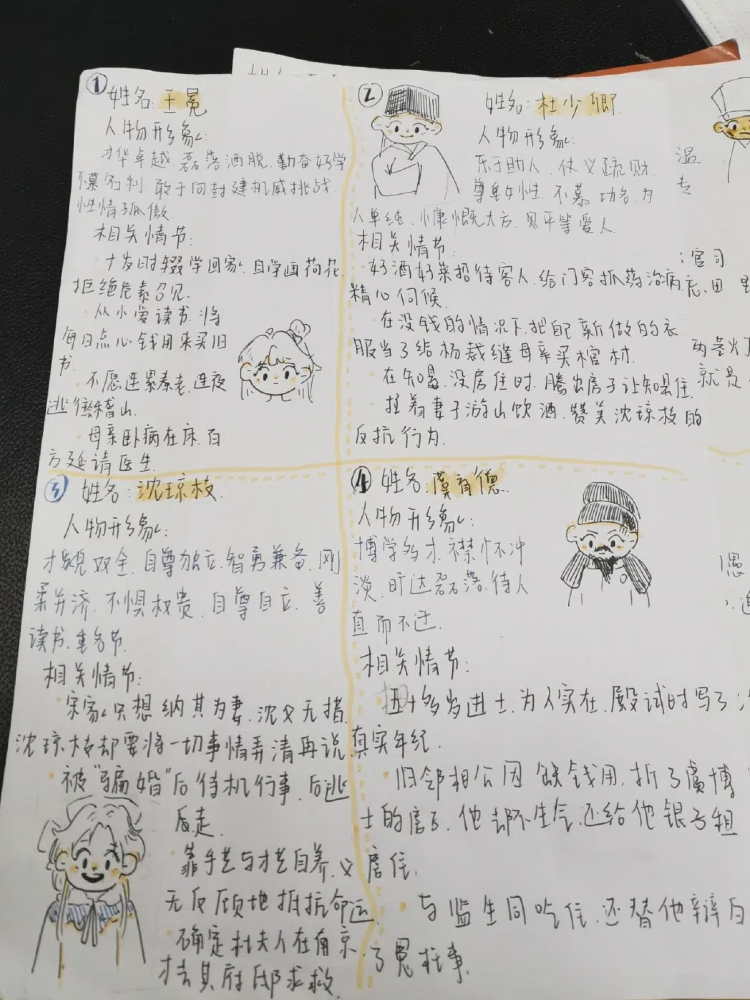 ① 姓名:王冕
人物形象:
才华卓越 磊落洒脱 勤奋好学
不慕名利 敢于向封建权威挑战
性情孤傲
相关情节:
·十岁时辍学回家,自学画荷花
拒绝危素召见
·从小学堂读书,将
每日点心钱用来买旧
书
·不愿连累秦老,连夜
逃往稽山
·母亲卧病在床,百
方延请医生
② 姓名:杜少卿
人物形象:
乐于助人 仗义疏财
尊卑女性 不慕功名 为
人单纯 慷慨大方 平等爱人
相关情节:
·好酒好菜招待客人,给门客抓药治病
精心伺候
·在没钱的情况下把自己新做的衣
服当了给杨裁缝母亲买棺材
·在知县没居住时,腾出房子让知县住
·拉着妻子游山饮酒,赞美沈琼枝的
反抗行为
③ 姓名:沈琼枝
人物形象:
才貌双全 自尊独立 智勇兼备 刚
柔并济 不惧权贵 自尊自立 善
读书 重名节
相关情节:
·宋家只想纳其为妻,沈父无措
沈琼枝却要将一切事情弄清再说
·被"骗婚"后待机行事,后逃
后走
·靠手艺与才艺自养,义
无反顾地抵抗命运
·确定杜夫人在南京
才去其府邸求救
④ 姓名:虞育德
人物形象:
博学多才 襟怀冲
淡 旷达磊落 待人
直而不迂
相关情节:
五十多岁进士,为人实在,殿试时写了
真实年纪
·旧邻相公因缺钱用,拆了虞博
士的房子,他却不生气,还给他银子租
房住
·与监生同吃住,还替他辩白
了冤枉事
温
官司
田
两茎灯
就是
愚